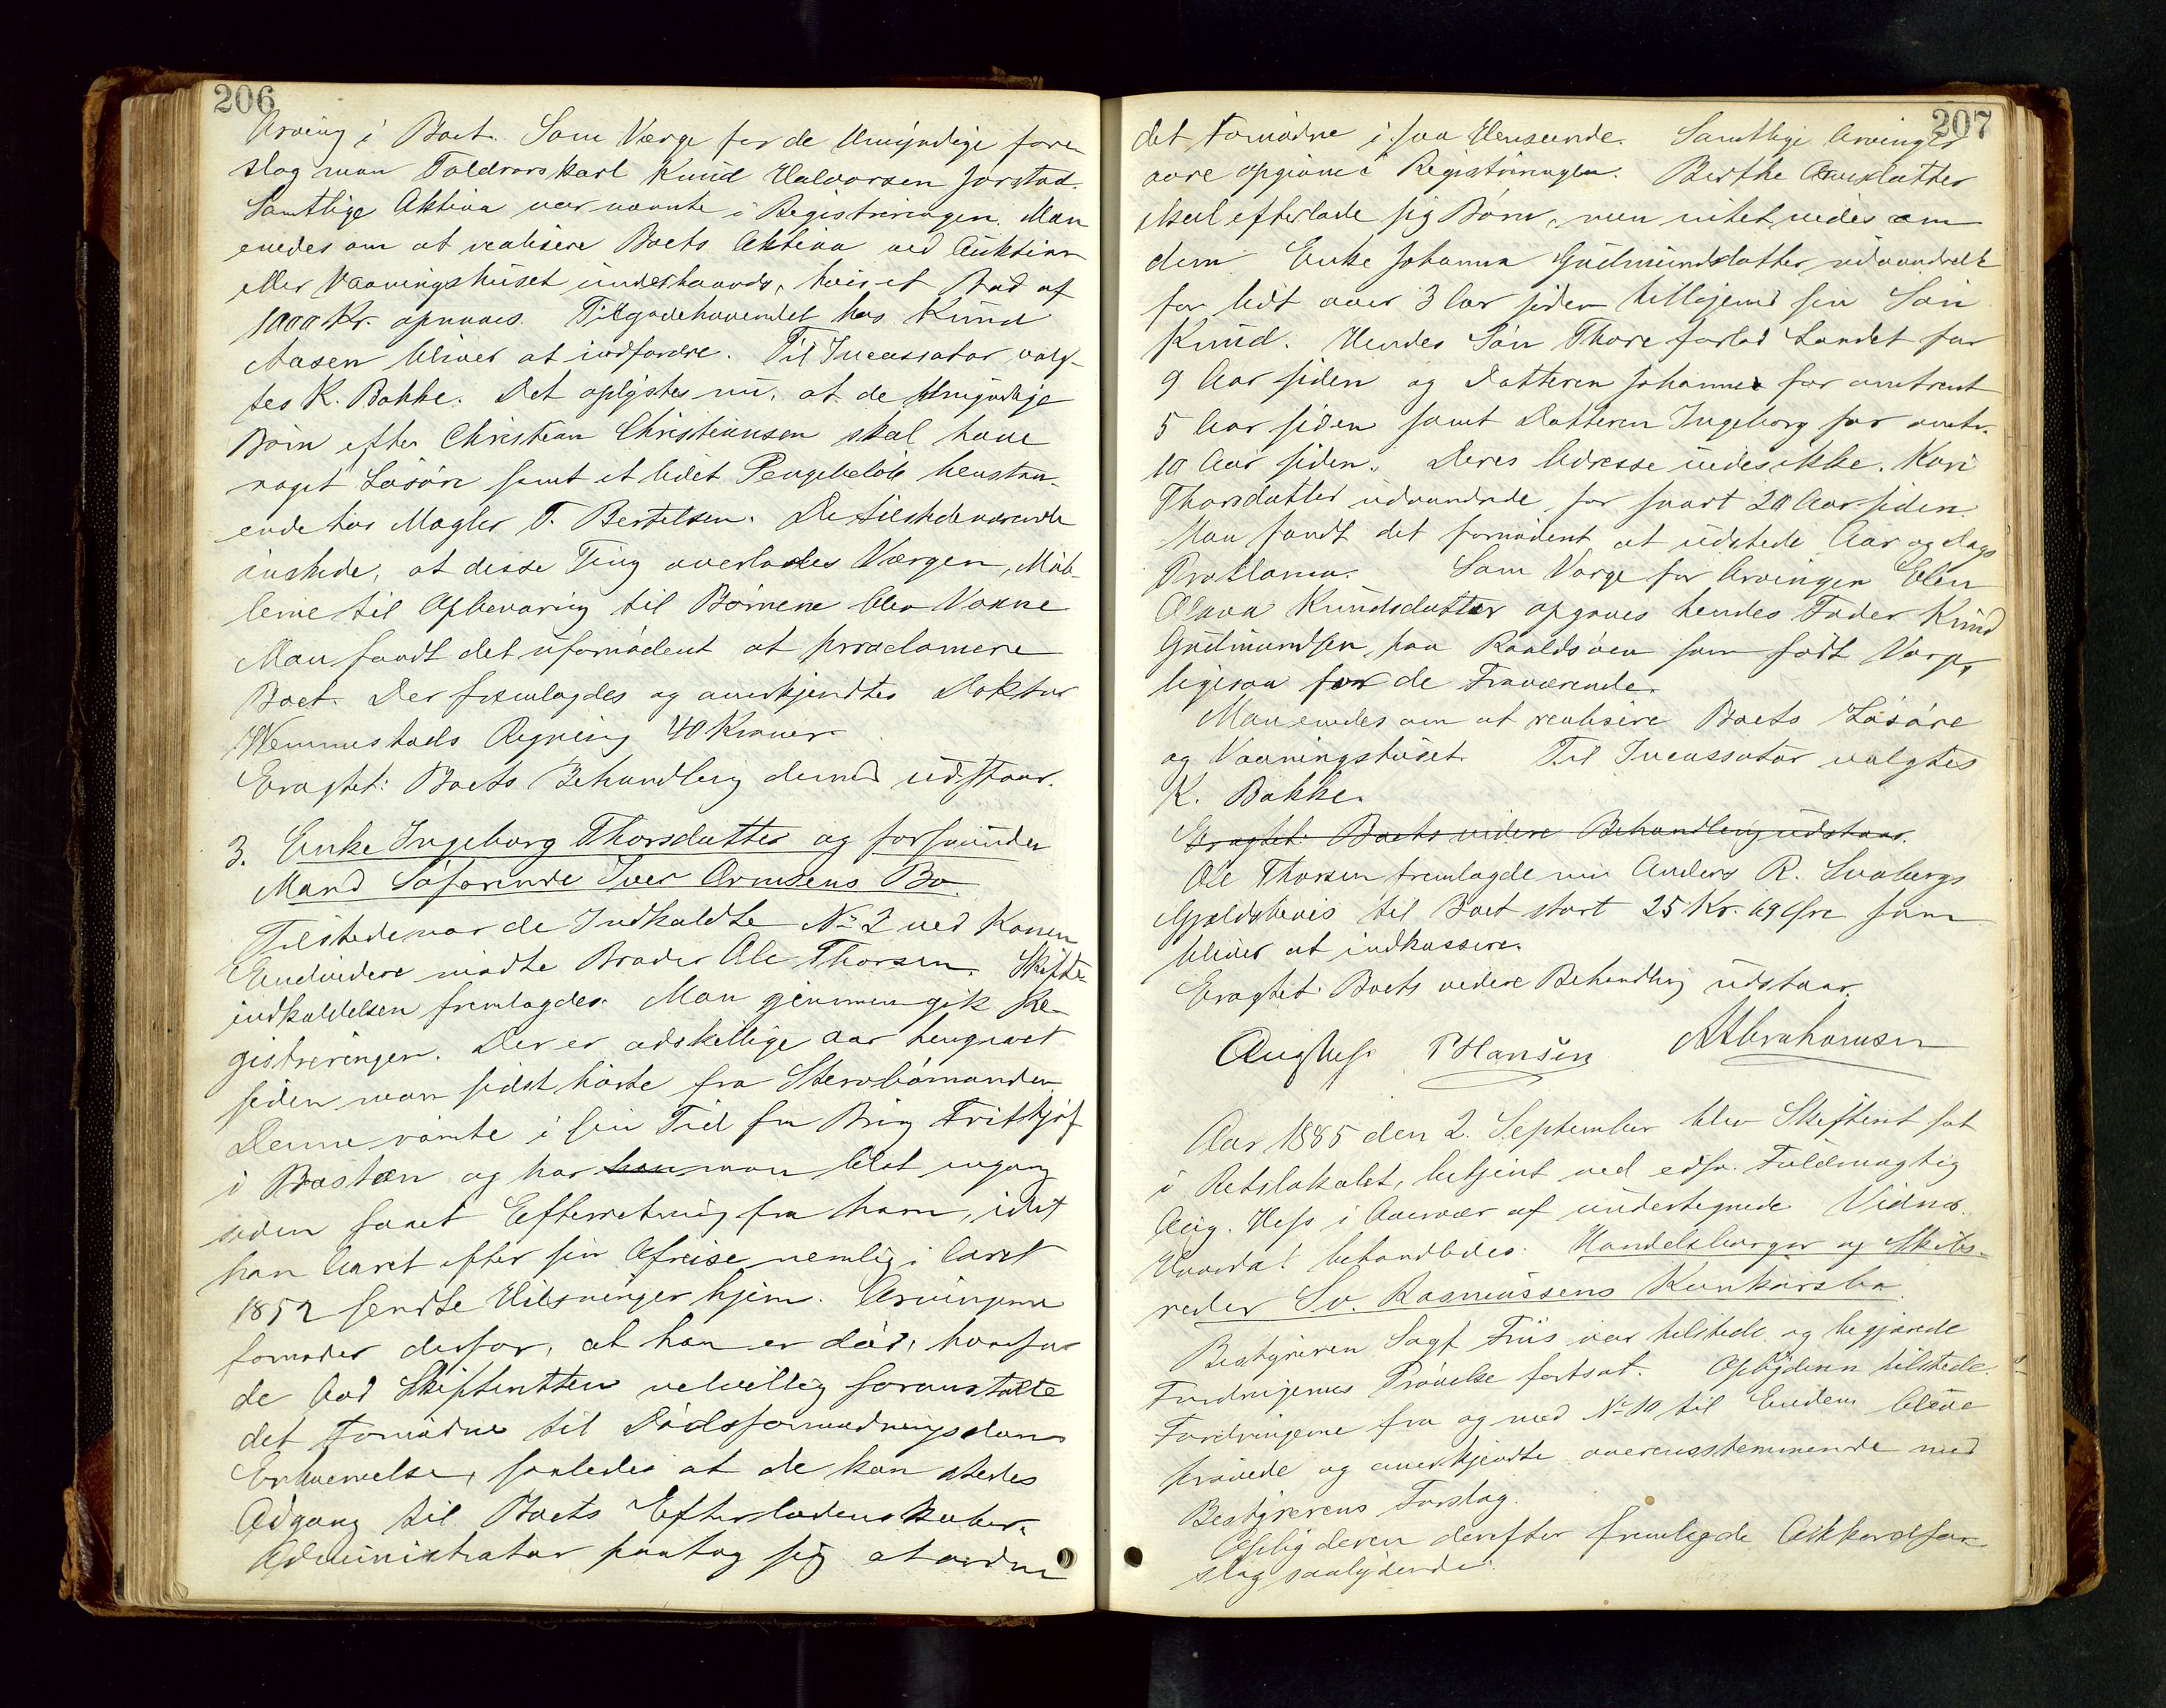 206
Arving i Boet. Som Værge for de Umyndige fore-
slog man Toldrorskarl Knud Halvorsen Jorstad.
Samtlige Aktiva var nævnte i Registreringen. Man
enedes om at realisere Boets Aktiva ved Auktion
eller Vaaningshuset underhaands, hvis et Bud af
1000 Kr. opnaaes. Tilgodehavendet hos Knud
Aasen bliver at indfordre. Til Incassator valg-
tes K. Bakke. Det oplystes nu, at de Umyndige
Børn efter Christian Christiansen skal have
noget Løsøre samt et lidet Pengebeløb henstaa-
ende hos Mægler T. Bertelsen. De tilstedeværende
ønskede, at disse Ting overlodes Værgen, Møb-
lerne til Opbevaring til Børnene blev Voxne
Man fandt det ufornødent at proclamere
Boet. Der fremlagdes og anerkjendtes Doktor
Wennustads Regning 40 Kroner.
Eragtet: Boets Behandling dermed udstaar.
3. Enke Ingeborg Thorsdatter og forsvunden
Mand Søfarende Iver Ormsens Bo.
Tilstede var de Indkaldte No 2 ved Konen
Endvidere mødte Broder Ole Thorsen. Skifte-
indkaldelsen fremlagdes. Man gjennemgik Re-
gistreringen. Der er adskillige Aar hengaaet
siden man sidst hørte fra Stervbomanden
Denne rømte i sin Tid fra Brig Frithjof
i Boston og har han man blot engang
siden faaet Efterretning fra ham, idet
han Aaret efter sin Afreise nemlig i Aaret
1852 sendte Hilsninger hjem. Arvingerne
formoder derfor, at han er død, hvorfor
de bad Skifteretten velvillig foranstalte
det Fornødne til Dødsformodningsdoms
Erhvervelse, saaledes at de kan stedes
Adgang til Boets Efterladenskaber.
Administrator paatog sig at ordne
207
det Fornødne i saa Henseende. Samtlige Arvinger
vare opgivne i Registreringen. Berthe Ormsdatter
skal efterlade sig Børn, men intet vides om
dem. Enke Johanna Gudmundsdatter udvandrede
for lidt over 3 Aar siden tilligemed sin Søn
Knud. Hendes Søn Thore forlod Landet for
9 Aar siden og Datteren Johanne for omtrent
5 Aar siden samt Datteren Ingeborg for omtr.
10 Aar siden. Deres Adresse vides ikke. Kari
Thorsdatter udvandrede for snart 20 Aar siden.
Man fandt det fornødent at udstede Aar og Dags
Proklama. Som Værge for Arvingen Elen
Olava Knudsdatter opgaves hendes Fader Knud
Gudmundsen, paa Roaldsøen som født Værge,
ligesaa for de Fraværende.
Man enedes om at realisere Boets Løsøre
og Vaaningshuset. Til Incassator valgtes
K. Bakke.
Eragtet: Boets videre Behandling udstaar.
Ole Thorsen fremlagde nu Anders R. Svabergs
Gjældsbevis til Boet stort 25 Kr. 69 Øre som
bliver at indkassere.
Eragtet: Boets videre Behandling udstaar.
Aug Hess. P Hansen A Abrahamsen
Aar 1885 den 2. September blev Skifteret sat
i Retslokalet, betjent ved edsv. Fuldmægtig
Aug. Hess i Overvær af undertegnede Vidner.
Hvorda! behandledes: Handelsborger og Skibs-
reder Sv. Rasmussens Konkursbo.
Bestyreren Sagf Friis var tilstede og begjærede
Fordringernes Prøvelse fortsat. Opbyderen tilstede.
Fordringerne fra og med No 10 til Enden bleve
prøvede og anerkjendte overensstemmende med
Bestyrerens Forslag.
Opbyderen derefter fremlagde Akkordfor-
slag saalydende: